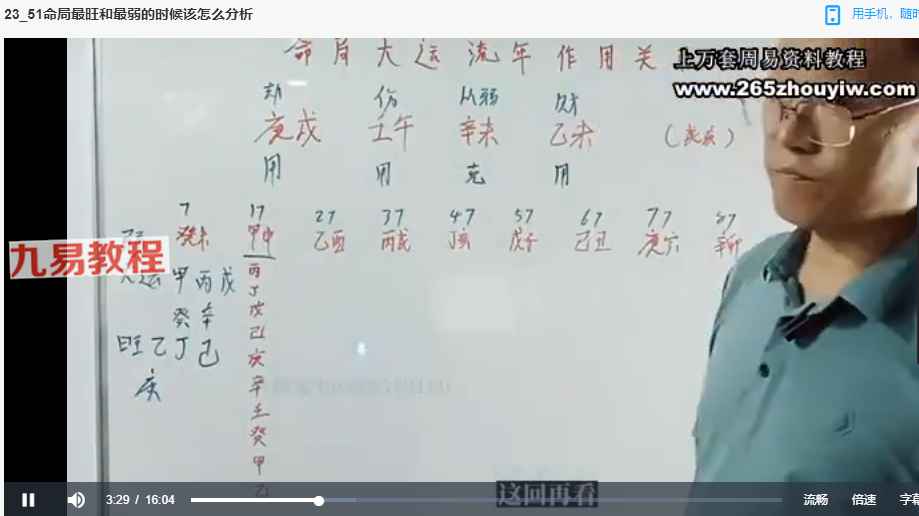 23_51命局最旺和最弱的时候该怎么分析
用手机，随时
命局大运流年作用关
上万套周易资料教程
www.265zhouyiw.com
劫 伤 从弱 财
庚戌 壬午 辛未 乙未
用 用 克 用
7 17 27 37 47 57 67 77 87
癸未 甲申 乙酉 丙戌 丁亥 戊子 己丑 庚寅 辛卯
九易教程
大运 甲丙戌
癸辛
旺乙丁己
庚
丙
丁
戊
己
庚
辛
壬
癸
甲
乙
这回再看
3:29 / 16:04
流畅 倍速 字幕